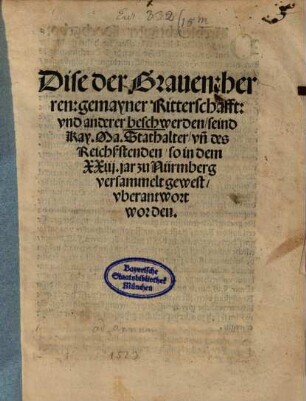 Eur. 332/15m
Dise der Grauen: her
ren: gemayner Ritterschafft:
vnd anderer beschwerden / seind
Kay. Ma. Stathalter / vñ des
Reichsstenden / so in dem
XXiij. jar zu Nürmberg
versammelt gewest /
vberantwort
worden.
Bayerische
Staatsbibliothek
München
1523